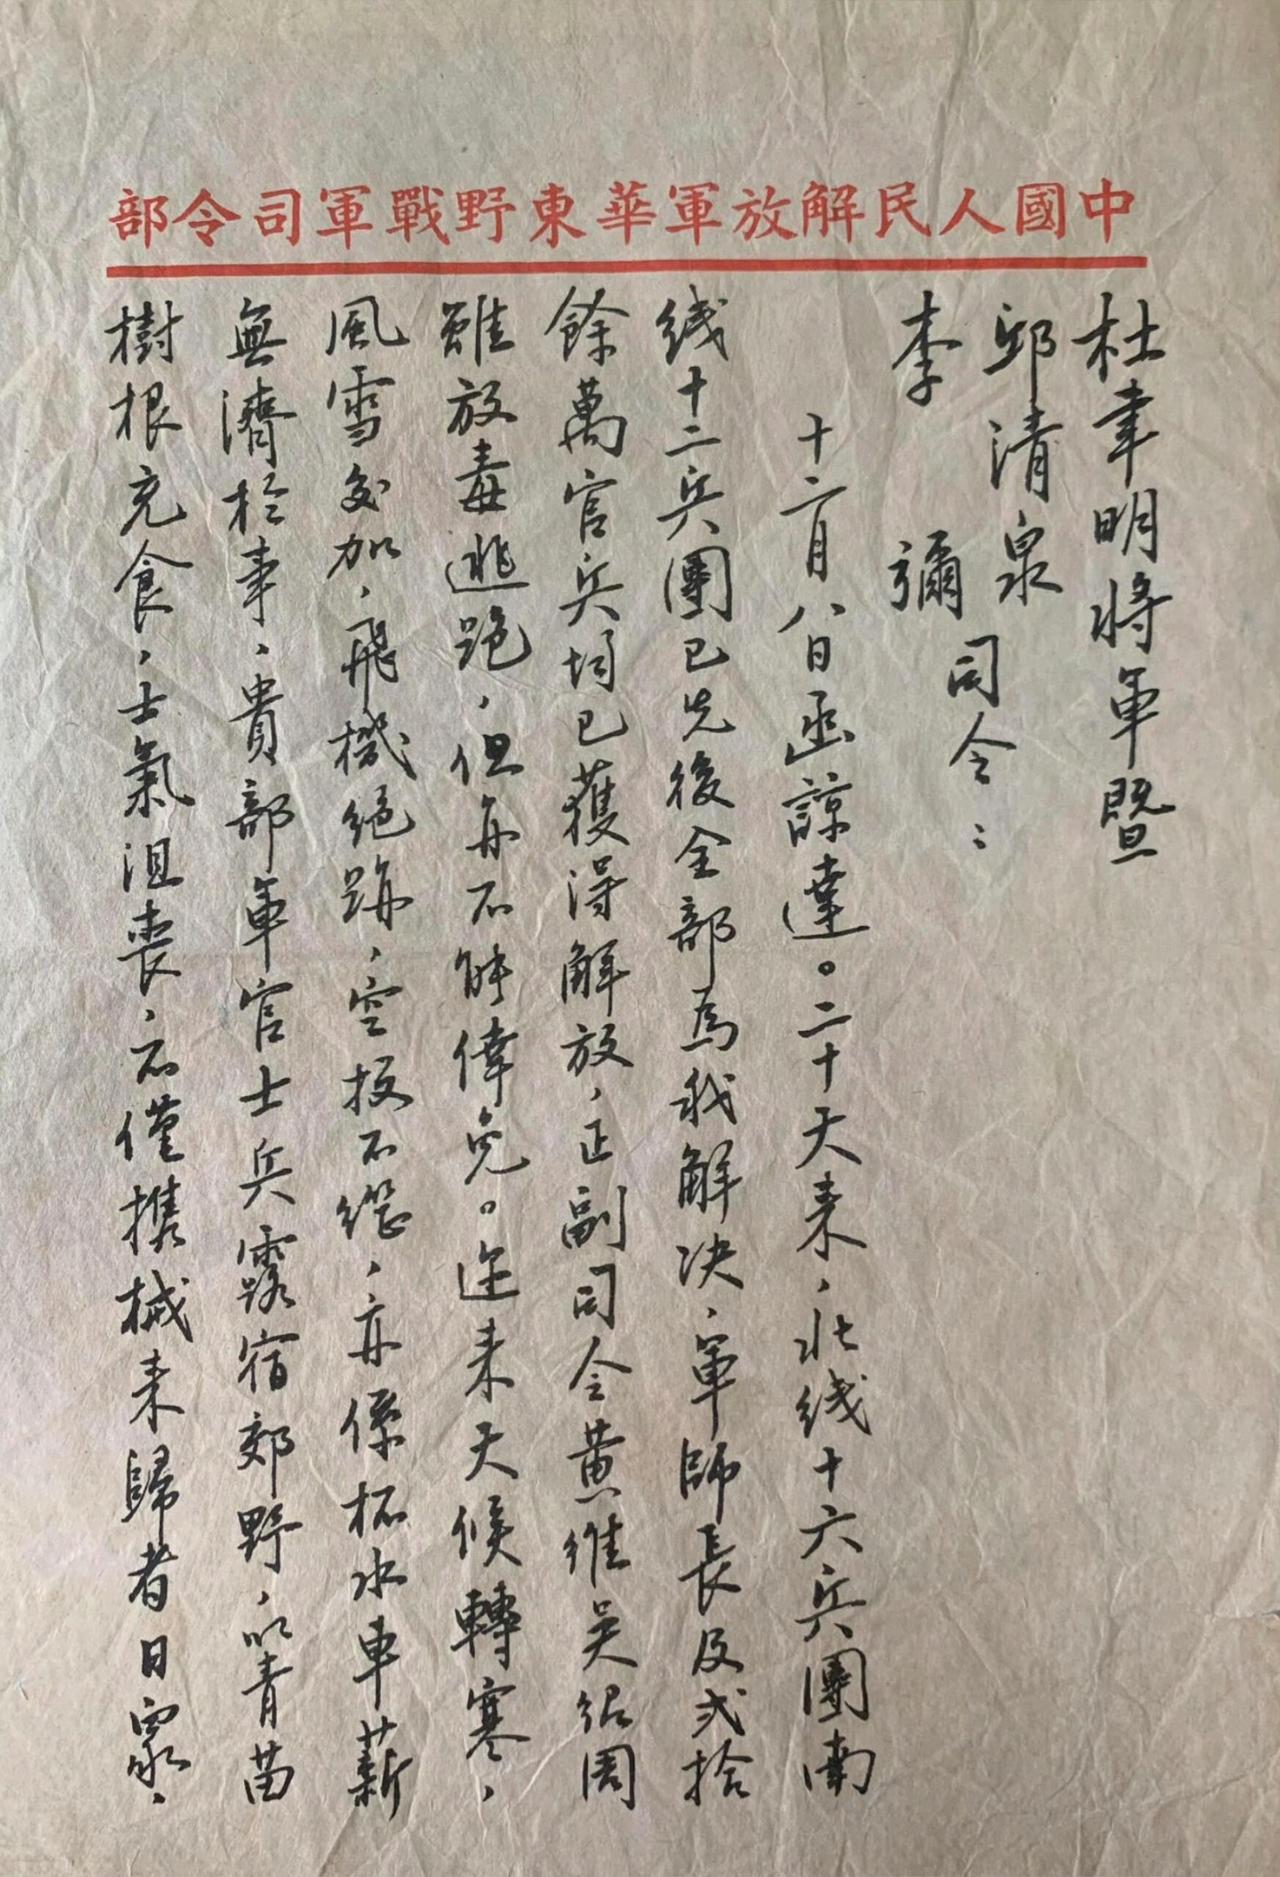 中國人民解放軍華東野戰軍司令部
杜聿明將軍暨
邱清泉
李彌
司令：
十二月八日函諒達。二十天來，北线十六兵團南
线十二兵團已先後全部為我解决，軍師長及弍拾
餘萬官兵均已獲得解放，正副司令黄維吴绍周
雖放毒逃跑，但亦不能倖免。近来天候轉寒，
風雪交加，飛機绝跡，空投不继，亦係杯水車薪
無濟於事，貴部軍官士兵露宿郊野，以青苗
樹根充食，士氣沮喪，不僅携械来歸者日衆，